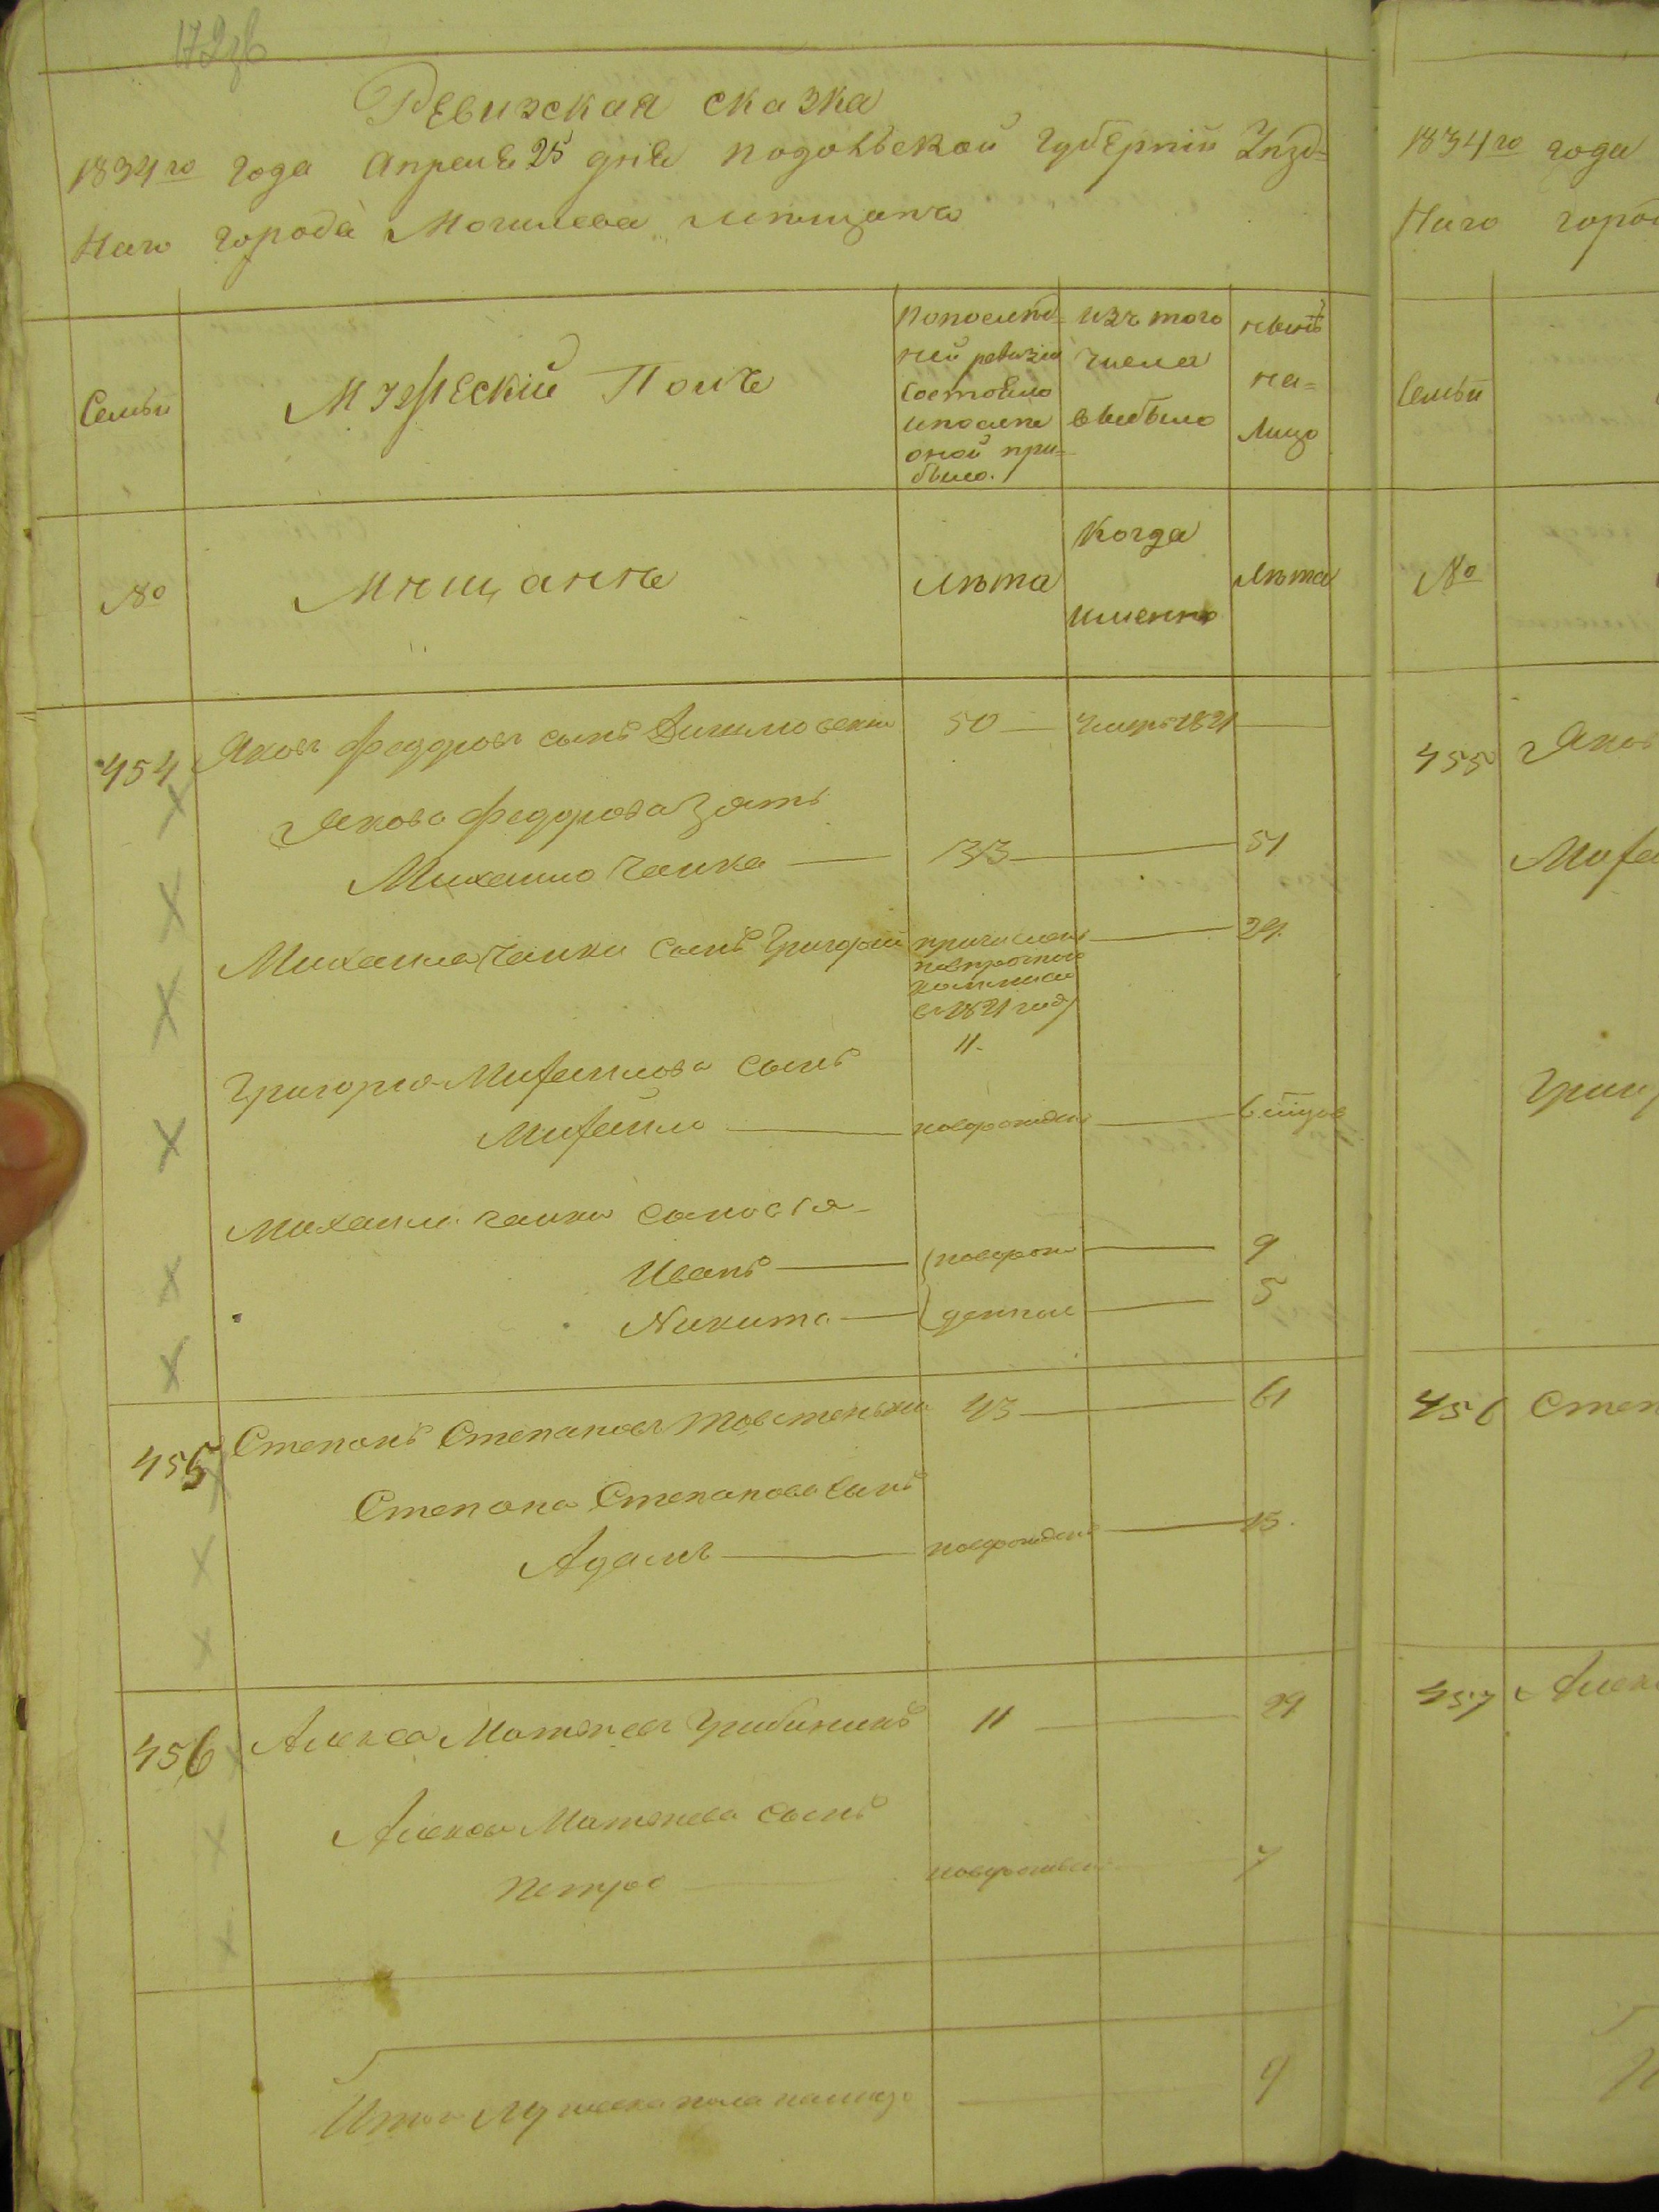 Ревизская сказка
1834го года Апреля 25 дня Подольской Губерніи Уѣзд=
наго города Могилева мѣщанъ
Семьи
Мужескій Полъ
Попослѣд=
ней ревизіи
состояло
и послѣ
оной при=
было.
изъ того
числа
выбыло
нынѣ
на=
лицо
№
Мѣщанѣ
Лѣта
Когда
именно
Лѣта
454
Яковъ Федоровъ сынъ
50
умеръ 1821
Якова Федорова Зять
Михайло Чайка
33
51
Михайла Чайки сынъ Григорій
причисленъ
в 1821 году
11
29
Григорія Михайлова сынъ
Михайло
новорожденъ
Михайли Чайки сыновья
Иванъ
новорож
9
Никита
денные
5
455
Степанъ Степановъ Товстенькій
43
61
Степана Степанова сынъ
Адамъ
новорожденъ
15.
456
Алекса Матвѣевъ
11
29
Алексы Матвѣева сынъ
Петро
новорожденъ
7
Итого Мужеска пола налицо
9
1834го года
Наго город
Семьи
№
455
Яков
Миха
Григ
456
Степ
457
Алек